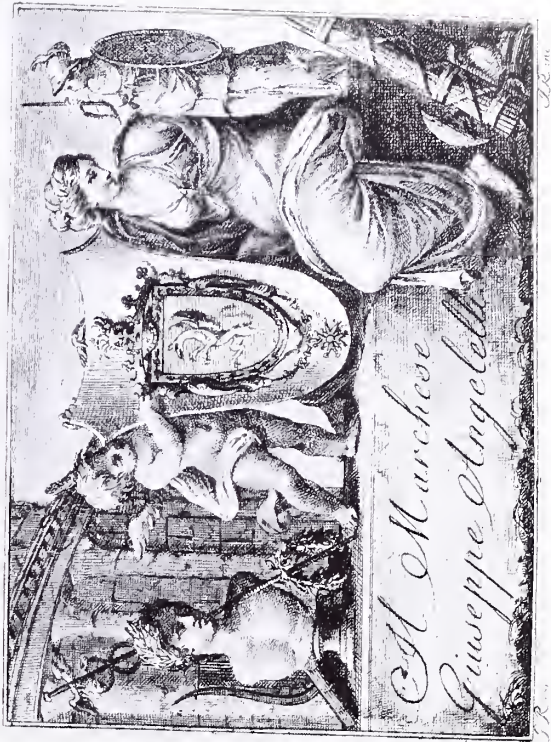 Il Marchese
Giuseppe Angelelli